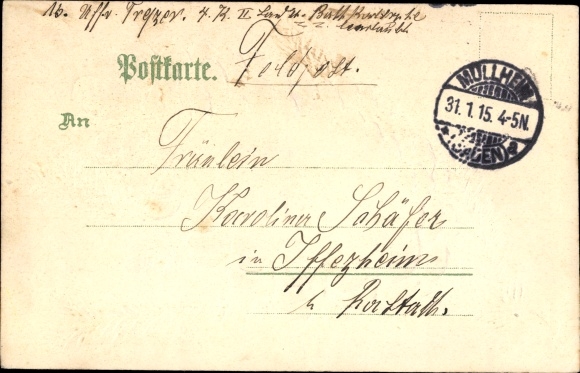 Uffz. Trezer. 4. K. II Landst. Batl. Karlsruhe
Postkarte. Feldpost.
MÜLLHEIM
31.1.15. 4-5N.
(BADEN) a
An
Fräulein
Karolina Schäfer
in Iffezheim
b Rastatt.